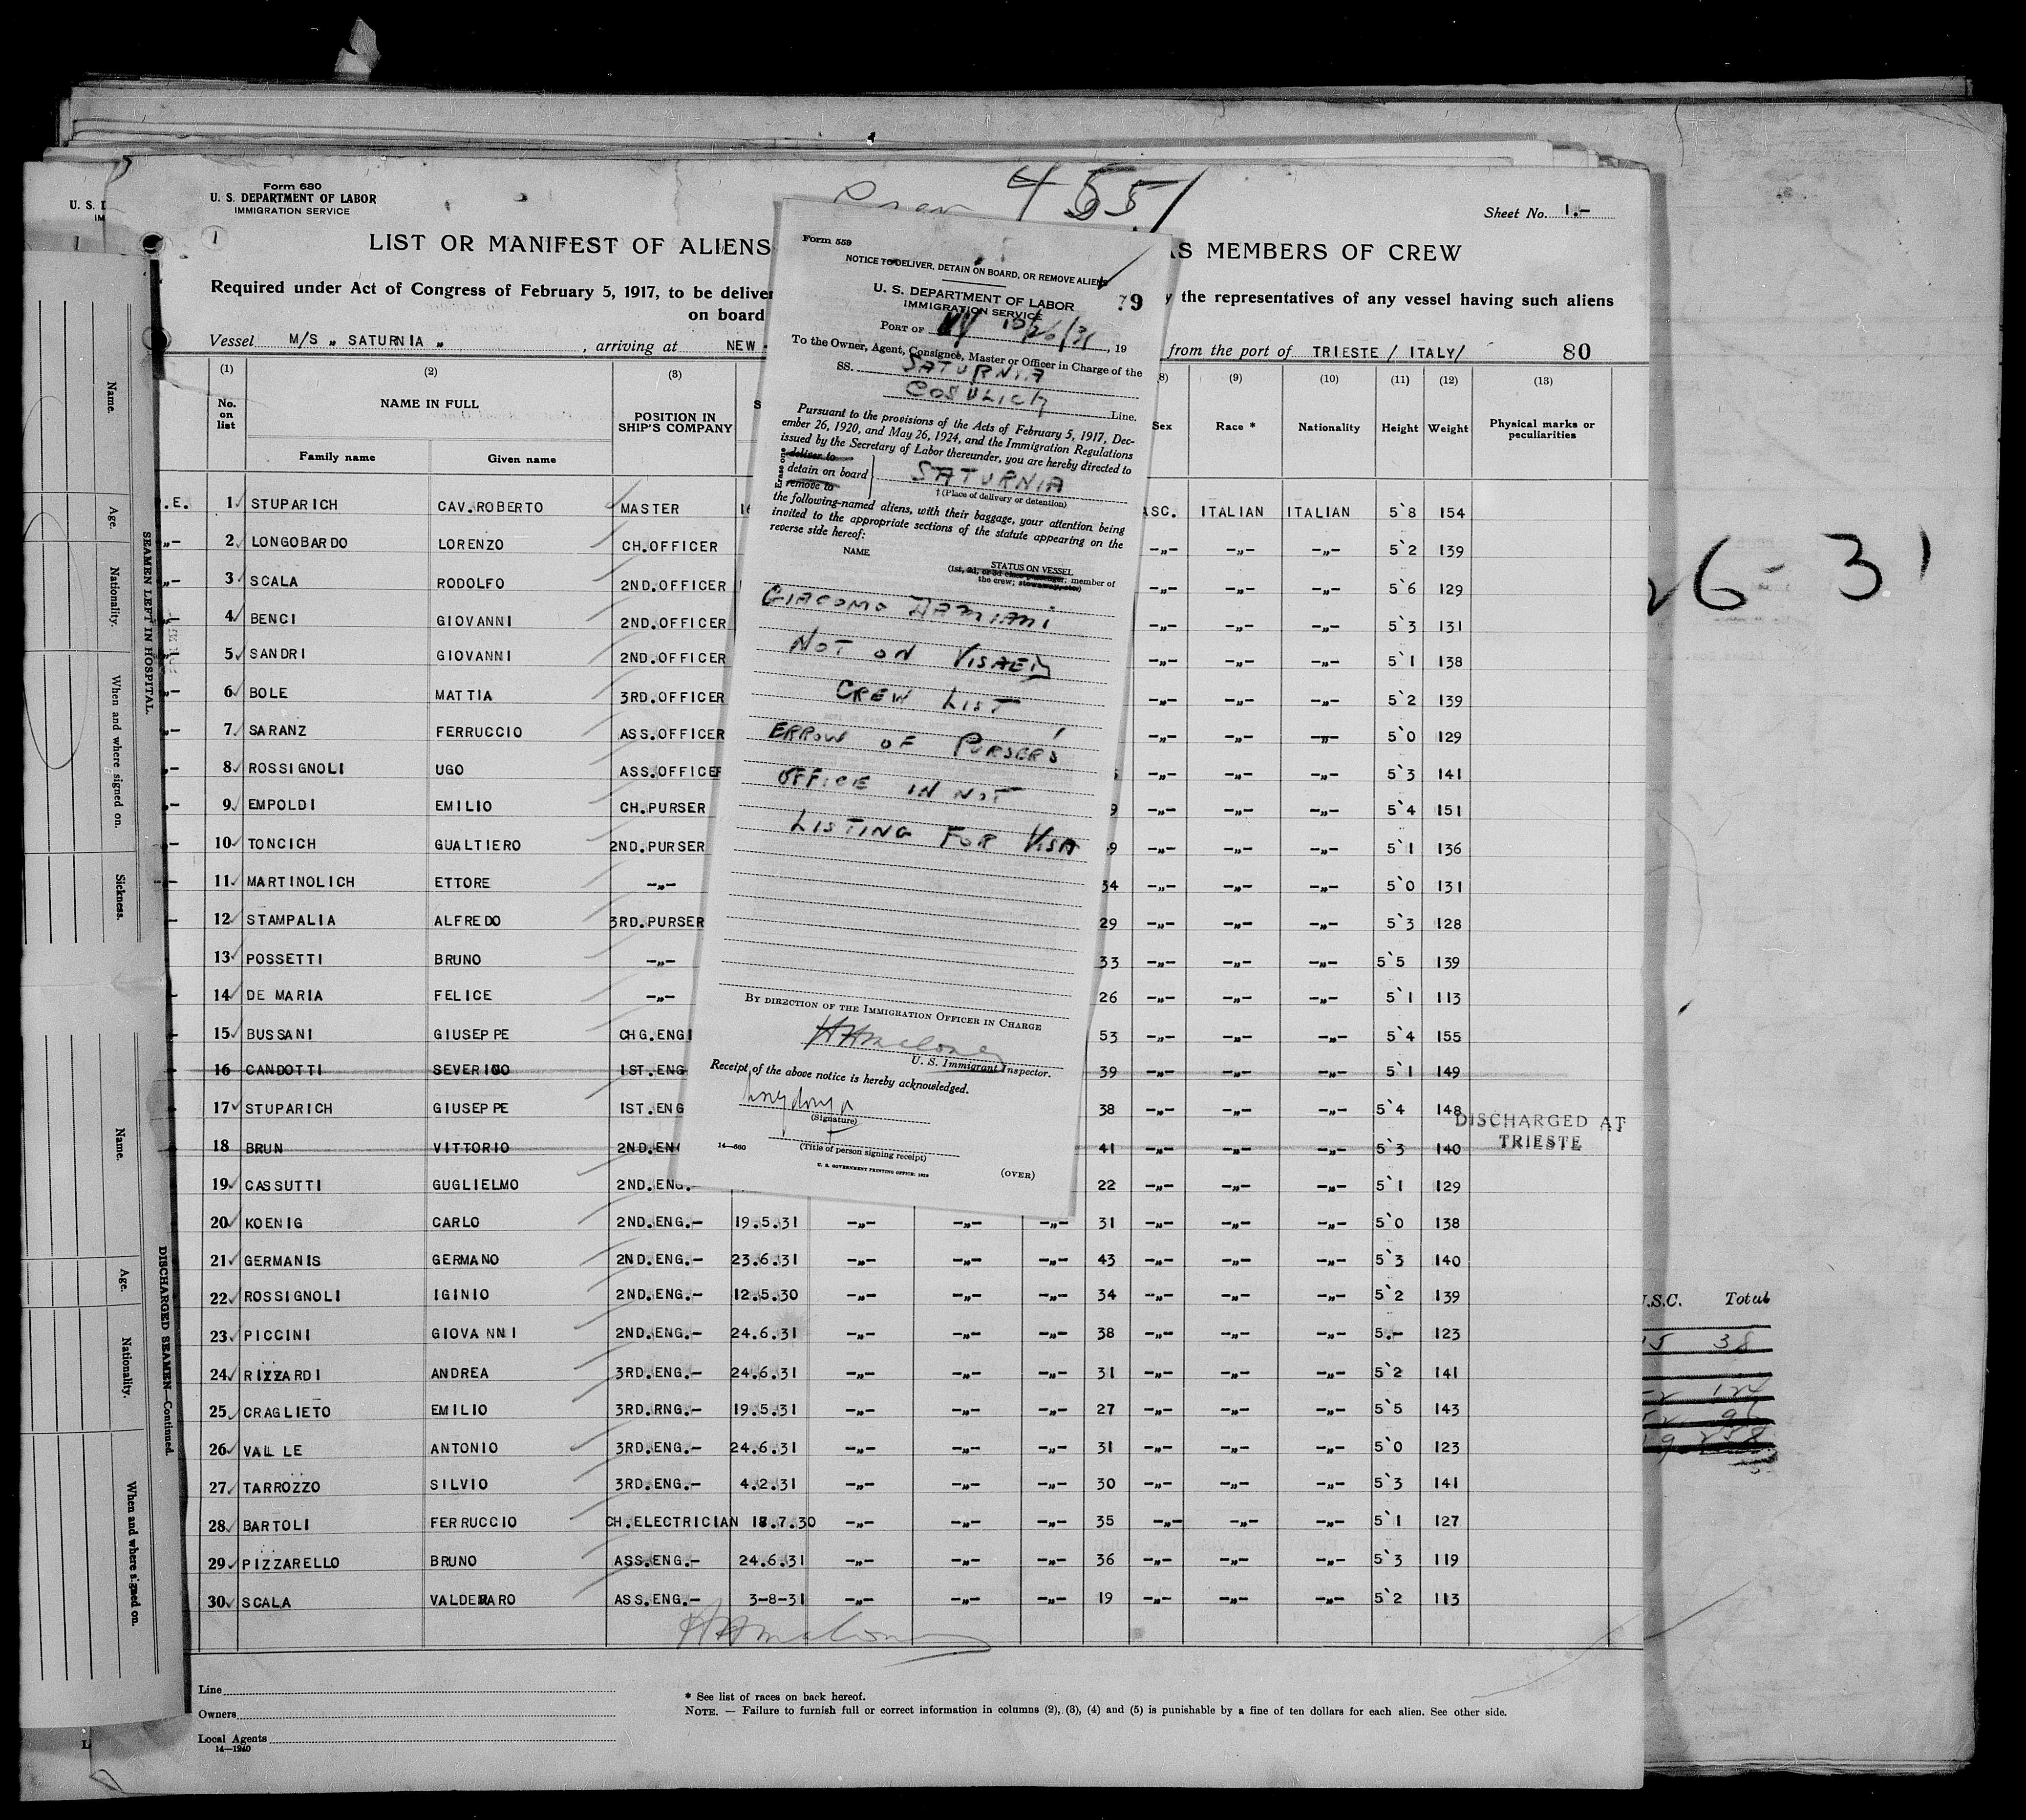 4551
Form 680
U. S. DEPARTMENT OF LABOR
IMMIGRATION SERVICE
Sheet No. 1.-
1
LIST OR MANIFEST OF ALIENS
AS MEMBERS OF CREW
Required under Act of Congress of February 5, 1917, to be deliver
y the representatives of any vessel having such aliens
on board
Vessel M/S „ SATURNIA „ , arriving at NEW
from the port of TRIESTE / ITALY/ 80
(1) (2) (3) (8) (9) (10) (11) (12) (13)
No. on list NAME IN FULL POSITION IN SHIP'S COMPANY Sex Race * Nationality Height Weight Physical marks or peculiarities
Family name Given name
.E. 1 STUPARICH CAV.ROBERTO MASTER ASC. ITALIAN ITALIAN 5`8 154
2 LONGOBARDO LORENZO CH.OFFICER -„- -„- -„- 5`2 139
3 SCALA RODOLFO 2ND.OFFICER -„- -„- -„- 5`6 129
4 BENCI GIOVANNI 2ND.OFFICER -„- -„- -„- 5`3 131
5 SANDRI GIOVANNI 2ND.OFFICER -„- -„- -„- 5`1 138
6 BOLE MATTIA 3RD.OFFICER -„- -„- -„- 5`2 139
7 SARANZ FERRUCCIO ASS.OFFICER -„- -„- -„- 5`0 129
8 ROSSIGNOLI UGO ASS.OFFICER -„- -„- -„- 5`3 141
9 EMPOLDI EMILIO CH.PURSER 9 -„- -„- -„- 5`4 151
10 TONCICH GUALTIERO 2ND.PURSER 9 -„- -„- -„- 5`1 136
11 MARTINOLICH ETTORE -„- 34 -„- -„- -„- 5`0 131
12 STAMPALIA ALFREDO 3RD.PURSER 29 -„- -„- -„- 5`3 128
13 POSSETTI BRUNO -„- 33 -„- -„- -„- 5`5 139
14 DE MARIA FELICE -„- 26 -„- -„- -„- 5`1 113
15 BUSSANI GIUSEPPE CHG.ENGI 53 -„- -„- -„- 5`4 155
16 CANDOTTI SEVERINO 1ST.ENG 39 -„- -„- -„- 5`1 149
17 STUPARICH GIUSEPPE 1ST.ENG 38 -„- -„- -„- 5`4 148
DISCHARGED AT
TRIESTE
18 BRUN VITTORIO 2ND.EN 41 -„- -„- -„- 5`3 140
19 CASSUTTI GUGLIELMO 2ND.ENG.- 22 -„- -„- -„- 5`1 129
20 KOENIG CARLO 2ND.ENG.- 19.5.31 -„- -„- -„- 31 -„- -„- -„- 5`0 138
21 GERMANIS GERMANO 2ND.ENG.- 23.6.31 -„- -„- -„- 43 -„- -„- -„- 5`3 140
22 ROSSIGNOLI IGINIO 2ND.ENG.- 12.5.30 -„- -„- -„- 34 -„- -„- -„- 5`2 139
23 PICCINI GIOVANNI 2ND.ENG.- 24.6.31 -„- -„- -„- 38 -„- -„- -„- 5.- 123
24 RIZZARDI ANDREA 3RD.ENG.- 24.6.31 -„- -„- -„- 31 -„- -„- -„- 5`2 141
25 CRAGLIETO EMILIO 3RD.RNG.- 19.5.31 -„- -„- -„- 27 -„- -„- -„- 5`5 143
26 VALLE ANTONIO 3RD.ENG.- 24.6.31 -„- -„- -„- 31 -„- -„- -„- 5`0 123
27 TARROZZO SILVIO 3RD.ENG.- 4.2.31 -„- -„- -„- 30 -„- -„- -„- 5`3 141
28 BARTOLI FERRUCCIO CH.ELECTRICIAN 18.7.30 -„- -„- -„- 35 -„- -„- -„- 5`1 127
29 PIZZARELLO BRUNO ASS.ENG.- 24.6.31 -„- -„- -„- 36 -„- -„- -„- 5`3 119
30 SCALA VALDEMARO ASS.ENG.- 3-8-31 -„- -„- -„- 19 -„- -„- -„- 5`2 113
Line
Owners
Local Agents
14—1240
* See list of races on back hereof.
NOTE. — Failure to furnish full or correct information in columns (2), (3), (4) and (5) is punishable by a fine of ten dollars for each alien. See other side.
Form 559
NOTICE TO DELIVER, DETAIN ON BOARD, OR REMOVE ALIENS
U. S. DEPARTMENT OF LABOR
IMMIGRATION SERVICE
79
PORT OF NY 10/26/31, 19
To the Owner, Agent, Consignee, Master or Officer in Charge of the
SS. SATURNIA
COSULICH Line.
Pursuant to the provisions of the Acts of February 5, 1917, Dec-
ember 26, 1920, and May 26, 1924, and the Immigration Regulations
issued by the Secretary of Labor thereunder, you are hereby directed to
Erase one
deliver to
detain on board
remove to
SATURNIA
† (Place of delivery or detention)
the following-named aliens, with their baggage, your attention being
invited to the appropriate sections of the statute appearing on the
reverse side hereof:
NAME
STATUS ON VESSEL
(1st, 2d, or 3d class passenger, member of
the crew; stowaway, etc.)
GIACOMO DAMIANI
NOT ON VISAED
CREW LIST
ERROR OF PURSER'S
OFFICE IN NOT
LISTING FOR VISA
BY DIRECTION OF THE IMMIGRATION OFFICER IN CHARGE
U. S. Immigrant Inspector.
Receipt of the above notice is hereby acknowledged.
(Signature)
(Title of person signing receipt)
14—660
U. S. GOVERNMENT PRINTING OFFICE: 1929
(OVER)
U. S. D
IM
Name.
Age.
Nationality.
When and where signed on.
Sickness.
SEAMEN LEFT IN HOSPITAL.
Name.
Age.
Nationality.
When and where signed on.
DISCHARGED SEAMEN—Continued.
26-31
U.S.C. Total
15 38